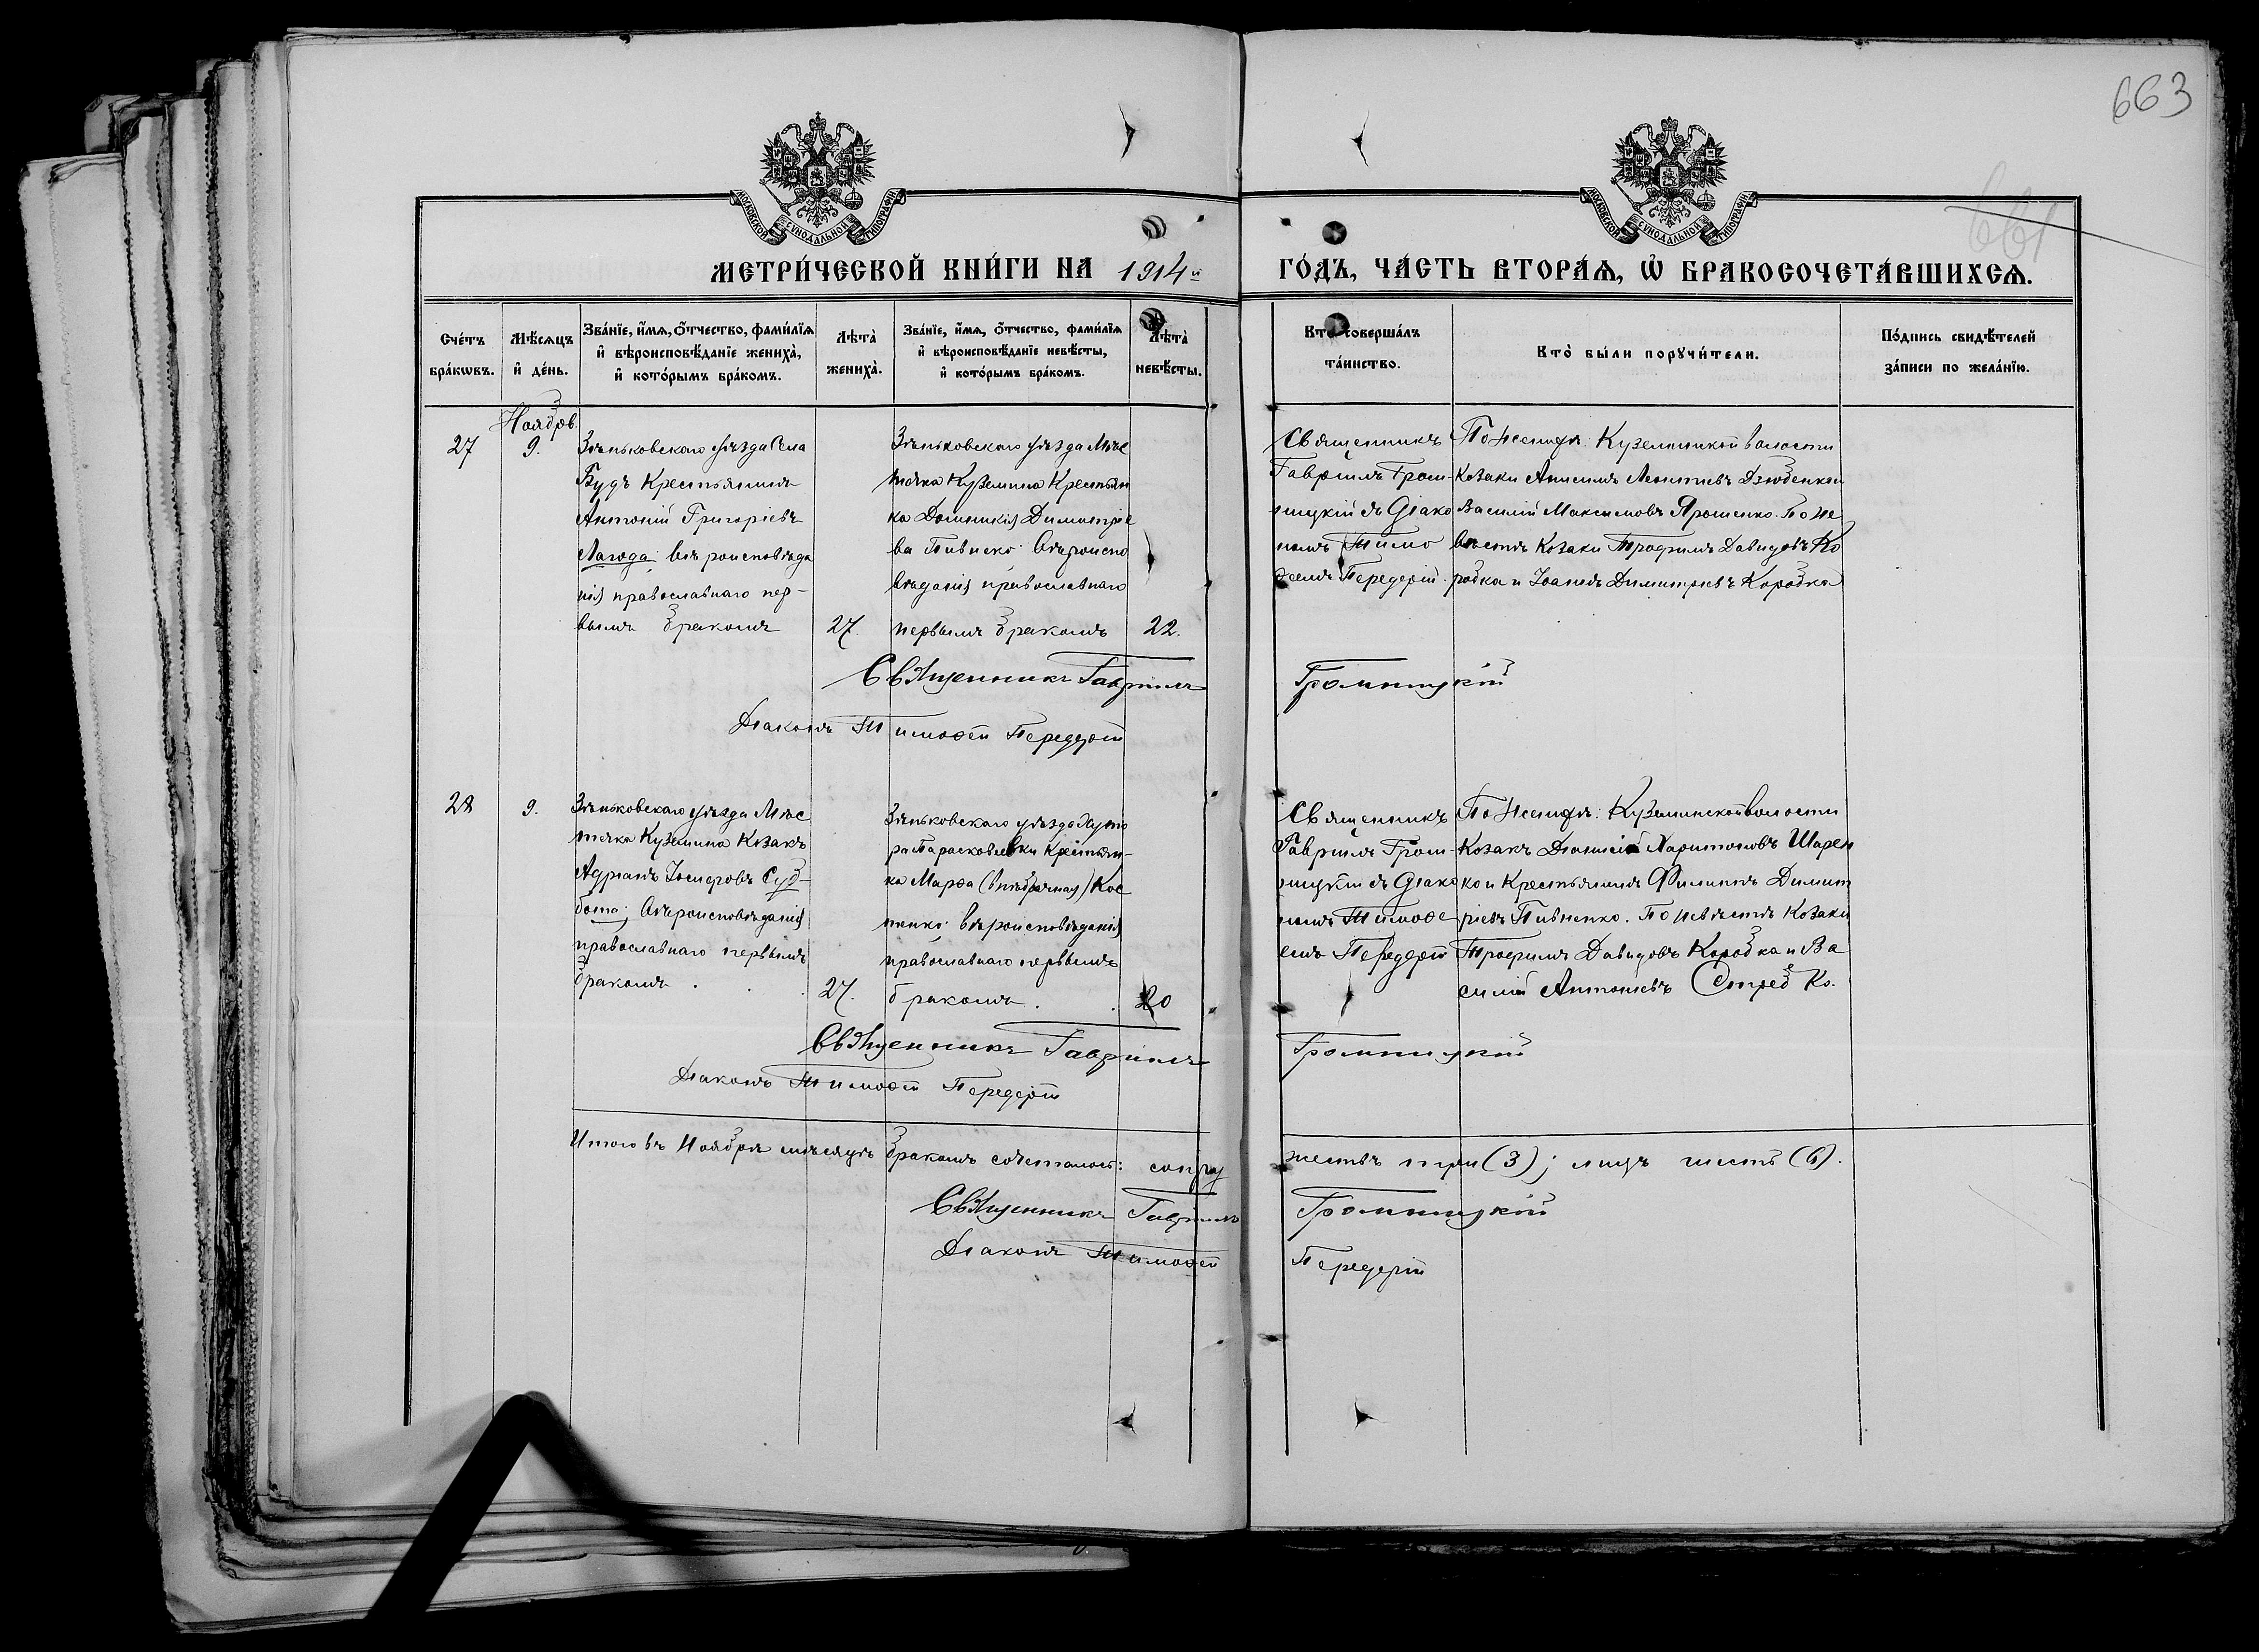 663
661
МОСКОВСКОЙ СУНОДАЛЬНОЙ ТИПОГРАФІИ
МОСКОВСКОЙ СУНОДАЛЬНОЙ ТИПОГРАФІИ
МЕТРИ́ЧЕСКОЙ КНИ́ГИ НА 1914й ГО́ДЪ, ЧА́СТЬ ВТОРА́Я, Ѡ҆ БРАКОСОЧЕТА́ВШИХСЯ.
Сче́тъ
бра́кѡвъ.
Мѣ́сяцъ
и҆ де́нь.
Зва́нїе, и҆́мя, ѻ҆́тчество, фами́лїя
и҆ вѣроисповѣ́данїе жениха̀,
и҆ кото́рымъ бра́комъ.
Лѣ́та̀
жениха̀.
Зва́нїе, и҆́мя, ѻ҆́тчество, фами́лїя
и҆ вѣроисповѣ́данїе невѣ́сты,
и҆ кото́рымъ бра́комъ.
Лѣ́та̀
невѣ́сты.
Кто̀ соверша́лъ
та́инство.
Кто̀ бы́ли порꙋчи́тели.
По́дпись свидѣ́телей
за́писи по жела́нїю.
Ноябрь
27
9.
Зѣньковскаго уѣзда Села
Будъ Крестьянинъ
Антоній Григоріевъ
Лагода: вѣроисповѣда
нія православнаго пер-
вымъ бракомъ
27.
Зѣньковскаго уѣзда Мѣс
течка Куземина Крестьян
ка Домникія Димитріе
ва Пивнен­ко: вѣроиспо
вѣданія православнаго
первымъ бракомъ
22.
Священникъ
Гавріилъ Гром-
ницкій съ діако
номъ Тимо
ѳеемъ Передерій.
По женихѣ: Куземинской волости
Козаки Анисимъ Леонтіевъ Дзюбенко и
Василій Максимовъ Ярошенко. По не
вѣстѣ Козаки Трофимъ Давидовъ Ко
робка и Іоаннъ Димитріевъ Коробка
Священникъ Гавріилъ Громницкій
Діаконъ Тимоѳей Передерій
28
9.
Зѣньковскаго уѣзда Мѣс
течка Куземина Козакъ
Адріанъ Іосифовъ Суб-
бота: вѣроисповѣданія
православнаго первымъ
бракомъ . . .
27.
Зѣньковскаго уѣзда Хуто
ра Парасковіевки Крестьян-
ка Марѳа (внѣбрачная) Кос
тенко: вѣроисповѣданія
православнаго первымъ
бракомъ . .
20
Священникъ
Гавріилъ Гром-
ницкій съ діако
номъ Тимоѳе
емъ Передерій
По женихѣ: Куземинской волости
Козакъ Діонисій Харитоновъ Шарен
ко и Крестьянинъ Филиппъ Димит
ріевъ Пивненко. По невѣстѣ Козаки
Трофимъ Давидовъ Коробка и Ва
силій Антоніевъ
Священникъ Гавріилъ Громницкій
Діаконъ Тимоѳей Передерій
Итого въ Ноябрѣ мѣсяцѣ бракомъ сочеталось: супру жествъ три (3); лицъ шесть (6).
Священникъ Гавріилъ Громницкій
Діаконъ Тимоѳей Передерій